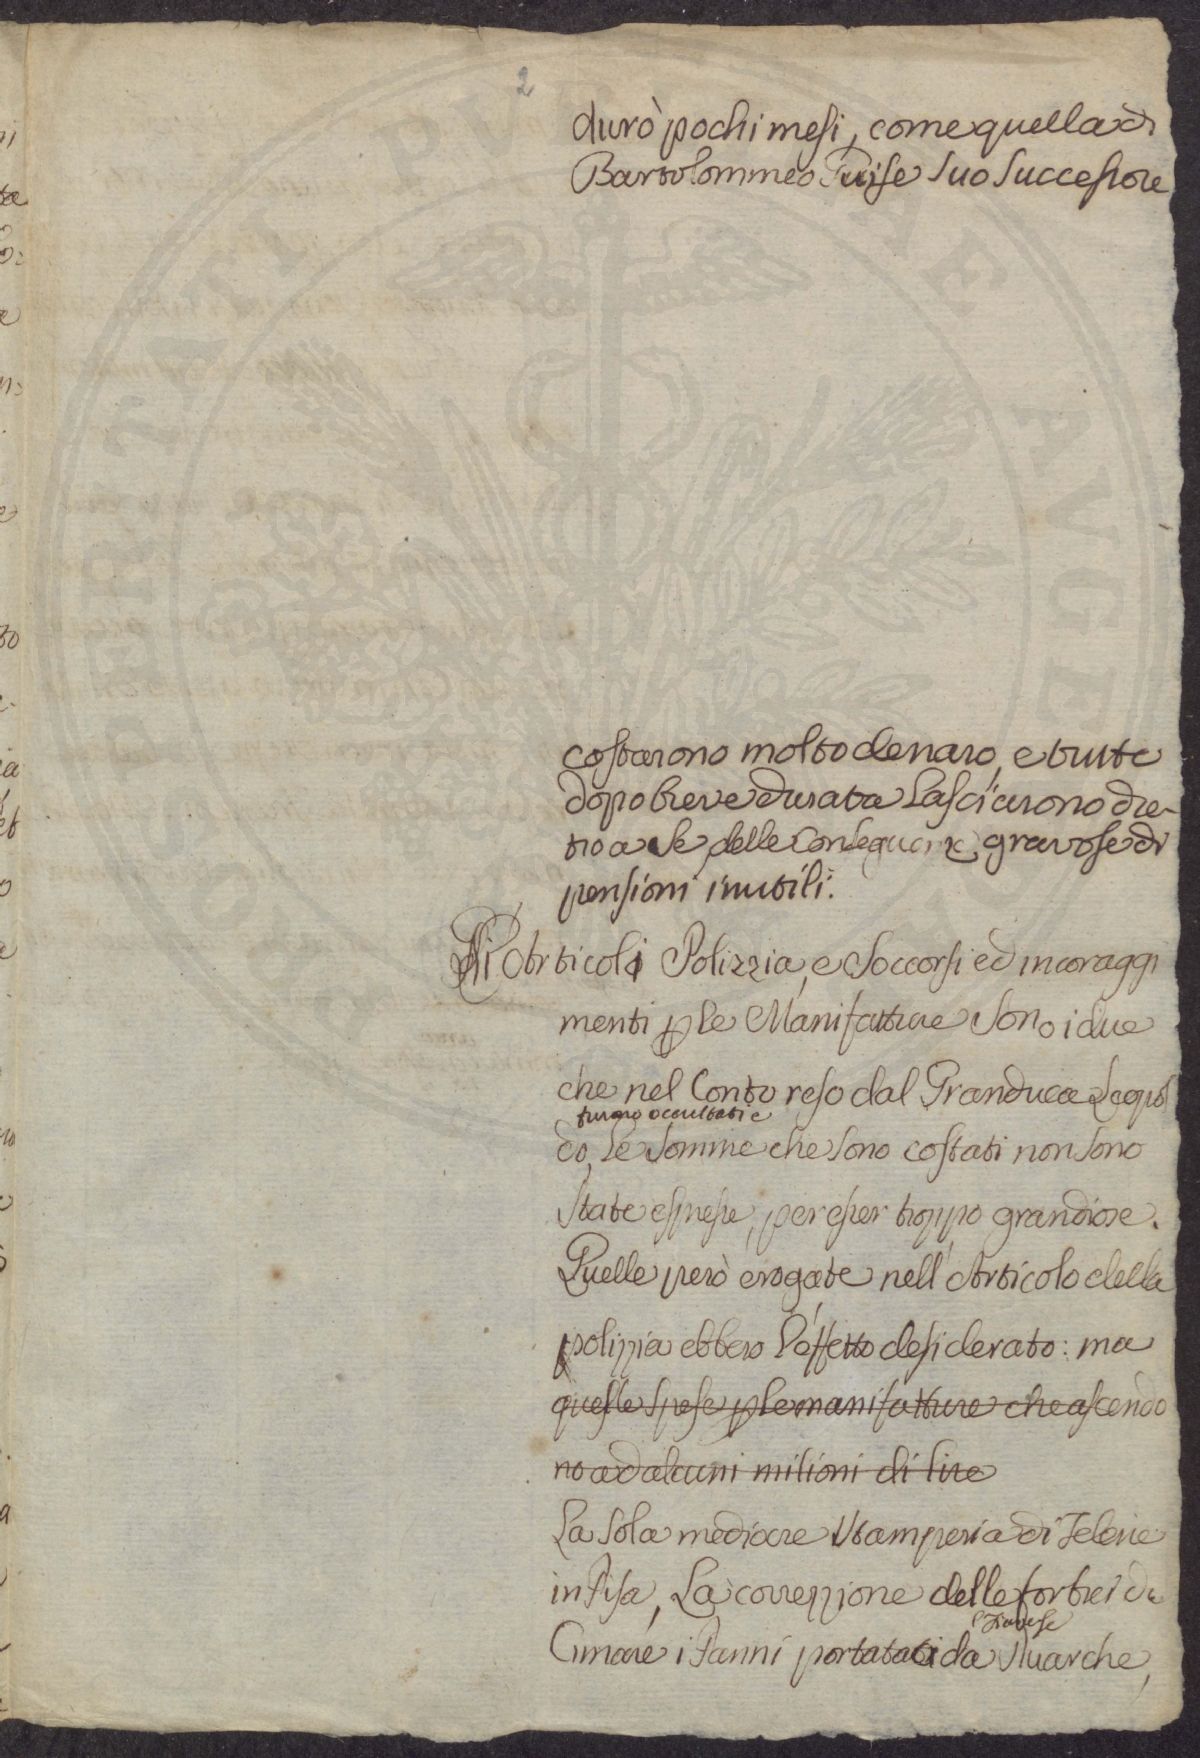 2
durò pochi mesi, come quella di
Bartolommeo suo successore
costarono molto denaro, e tutte
dopo breve durata lasciarono die-
tro a se delle conseguenze gravose di
pensioni inutili.
Articoli Polizzia, e Soccorsi ed incoraggi
menti p le Manifatture sono i due
che nel Conto reso dal Granduca Leopol
furono occultati e
do, le somme che sono costati non sono
state espresse, per esser troppo grandiose.
Quelle però erogate nell'Articolo della
polizzia ebbero l'effetto desiderato: ma
quelle spese p le manifatture che ascendo
no ad alcuni milioni di lire
La sola mediocre stamperia di Telerie
in Pisa, La correzzione delle forbici da
Cimare i Panni da Marche,